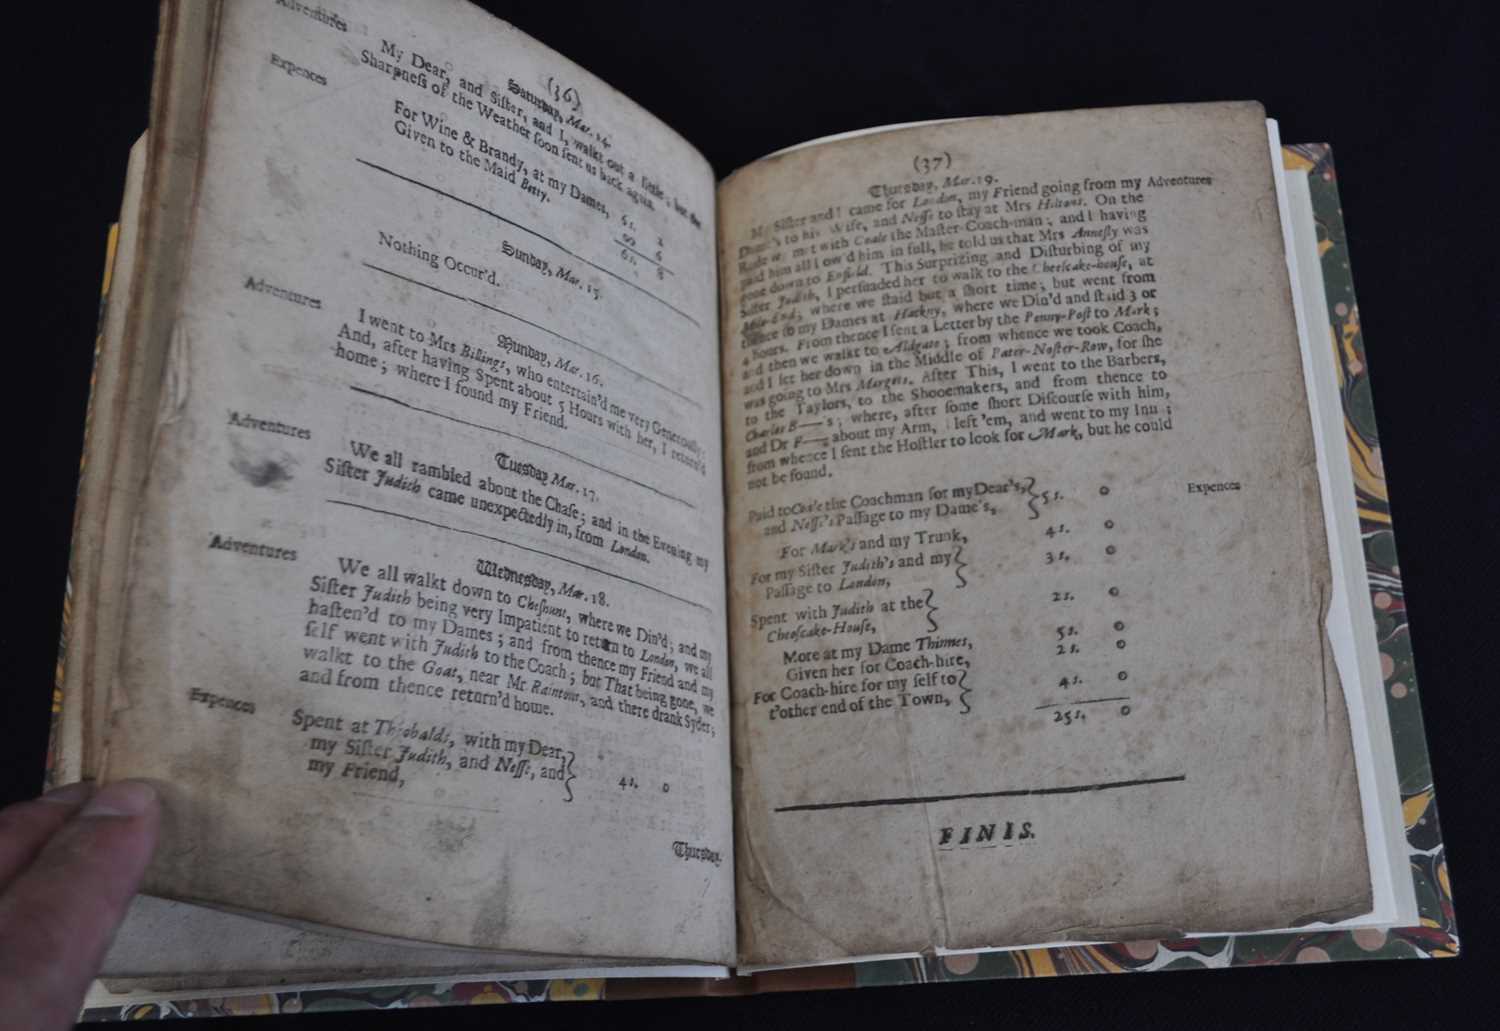 (36)
Saturday, Mar. 14.
Adventures
My Dear, and Siſter, and I, walkt out a little; but the
Sharpneſs of the Weather ſoon ſent us back again.
Expences
For Wine & Brandy, at my Dames, 6s. 2
Given to the Maid Betty. 00 6
6s. 8
Sunday, Mar. 15.
Nothing Occur'd.
Munday, Mar. 16.
Adventures
I went to Mrs Billings, who entertain'd me very Generouſly:
And, after having Spent about 5 Hours with her, I return'd
home; where I found my Friend.
Tuesday Mar. 17.
Adventures
We all rambled about the Chaſe; and in the Evening my
Siſter Judith came unexpectedly in, from London.
Wednesday, Mar. 18.
Adventures
We all walkt down to Cheſhunt, where we Din'd; and my
Siſter Judith being very Impatient to return to London, we all
haſten'd to my Dames; and from thence my Friend and my
ſelf went with Judith to the Coach; but That being gone, we
walkt to the Goat, near Mr Raintons, and there drank Syder;
and from thence return'd home.
Expences
Spent at Theobalds, with my Dear,
my Siſter Judith, and Neſſe, and
my Friend, 4s. 0
Thursday.
(37)
Thursday, Mar. 19.
My Siſter and I came for London, my Friend going from my Adventures
Dame's to his Wife, and Neſſe to ſtay at Mrs Hiltons. On the
Rode we met with Coale the Maſter-Coach-man; and I having
paid him all I ow'd him in full, he told us that Mrs Anneſly was
gone down to Enfield. This Surprizing and Diſturbing of my
Siſter Judith, I perſuaded her to walk to the Cheeſcake-houſe, at
Mile-End; where we ſtaid but a ſhort time; but went from
thence to my Dames at Hackny, where we Din'd and ſtaid 3 or
4 hours. From thence I ſent a Letter by the Penny-Poſt to Mark;
and then we walkt to Aldgate; from whence we took Coach,
and I ſet her down in the Middle of Pater-Noſter-Row, for ſhe
was going to Mrs Margets. After This, I went to the Barbers,
to the Taylors, to the Shooemakers, and from thence to
Charles B——s; where, after ſome ſhort Diſcourſe with him,
and Dr F—— about my Arm, I left 'em, and went to my Inn;
from whence I ſent the Hoſtler to look for Mark, but he could
not be found.
Expences
Paid to Coale the Coachman for my Dear's,
and Neſſe's Paſſage to my Dame's, 5s. 0
For Mark's and my Trunk, 4s. 0
For my Siſter Judith's and my
Paſſage to London, 3s. 0
Spent with Judith at the
Cheeſcake-Houſe, 2s. 0
More at my Dame Thimnes, 5s. 0
Given her for Coach-hire, 2s. 0
For Coach-hire for my ſelf to
t'other end of the Town, 4s. 0
25s. 0
FINIS.